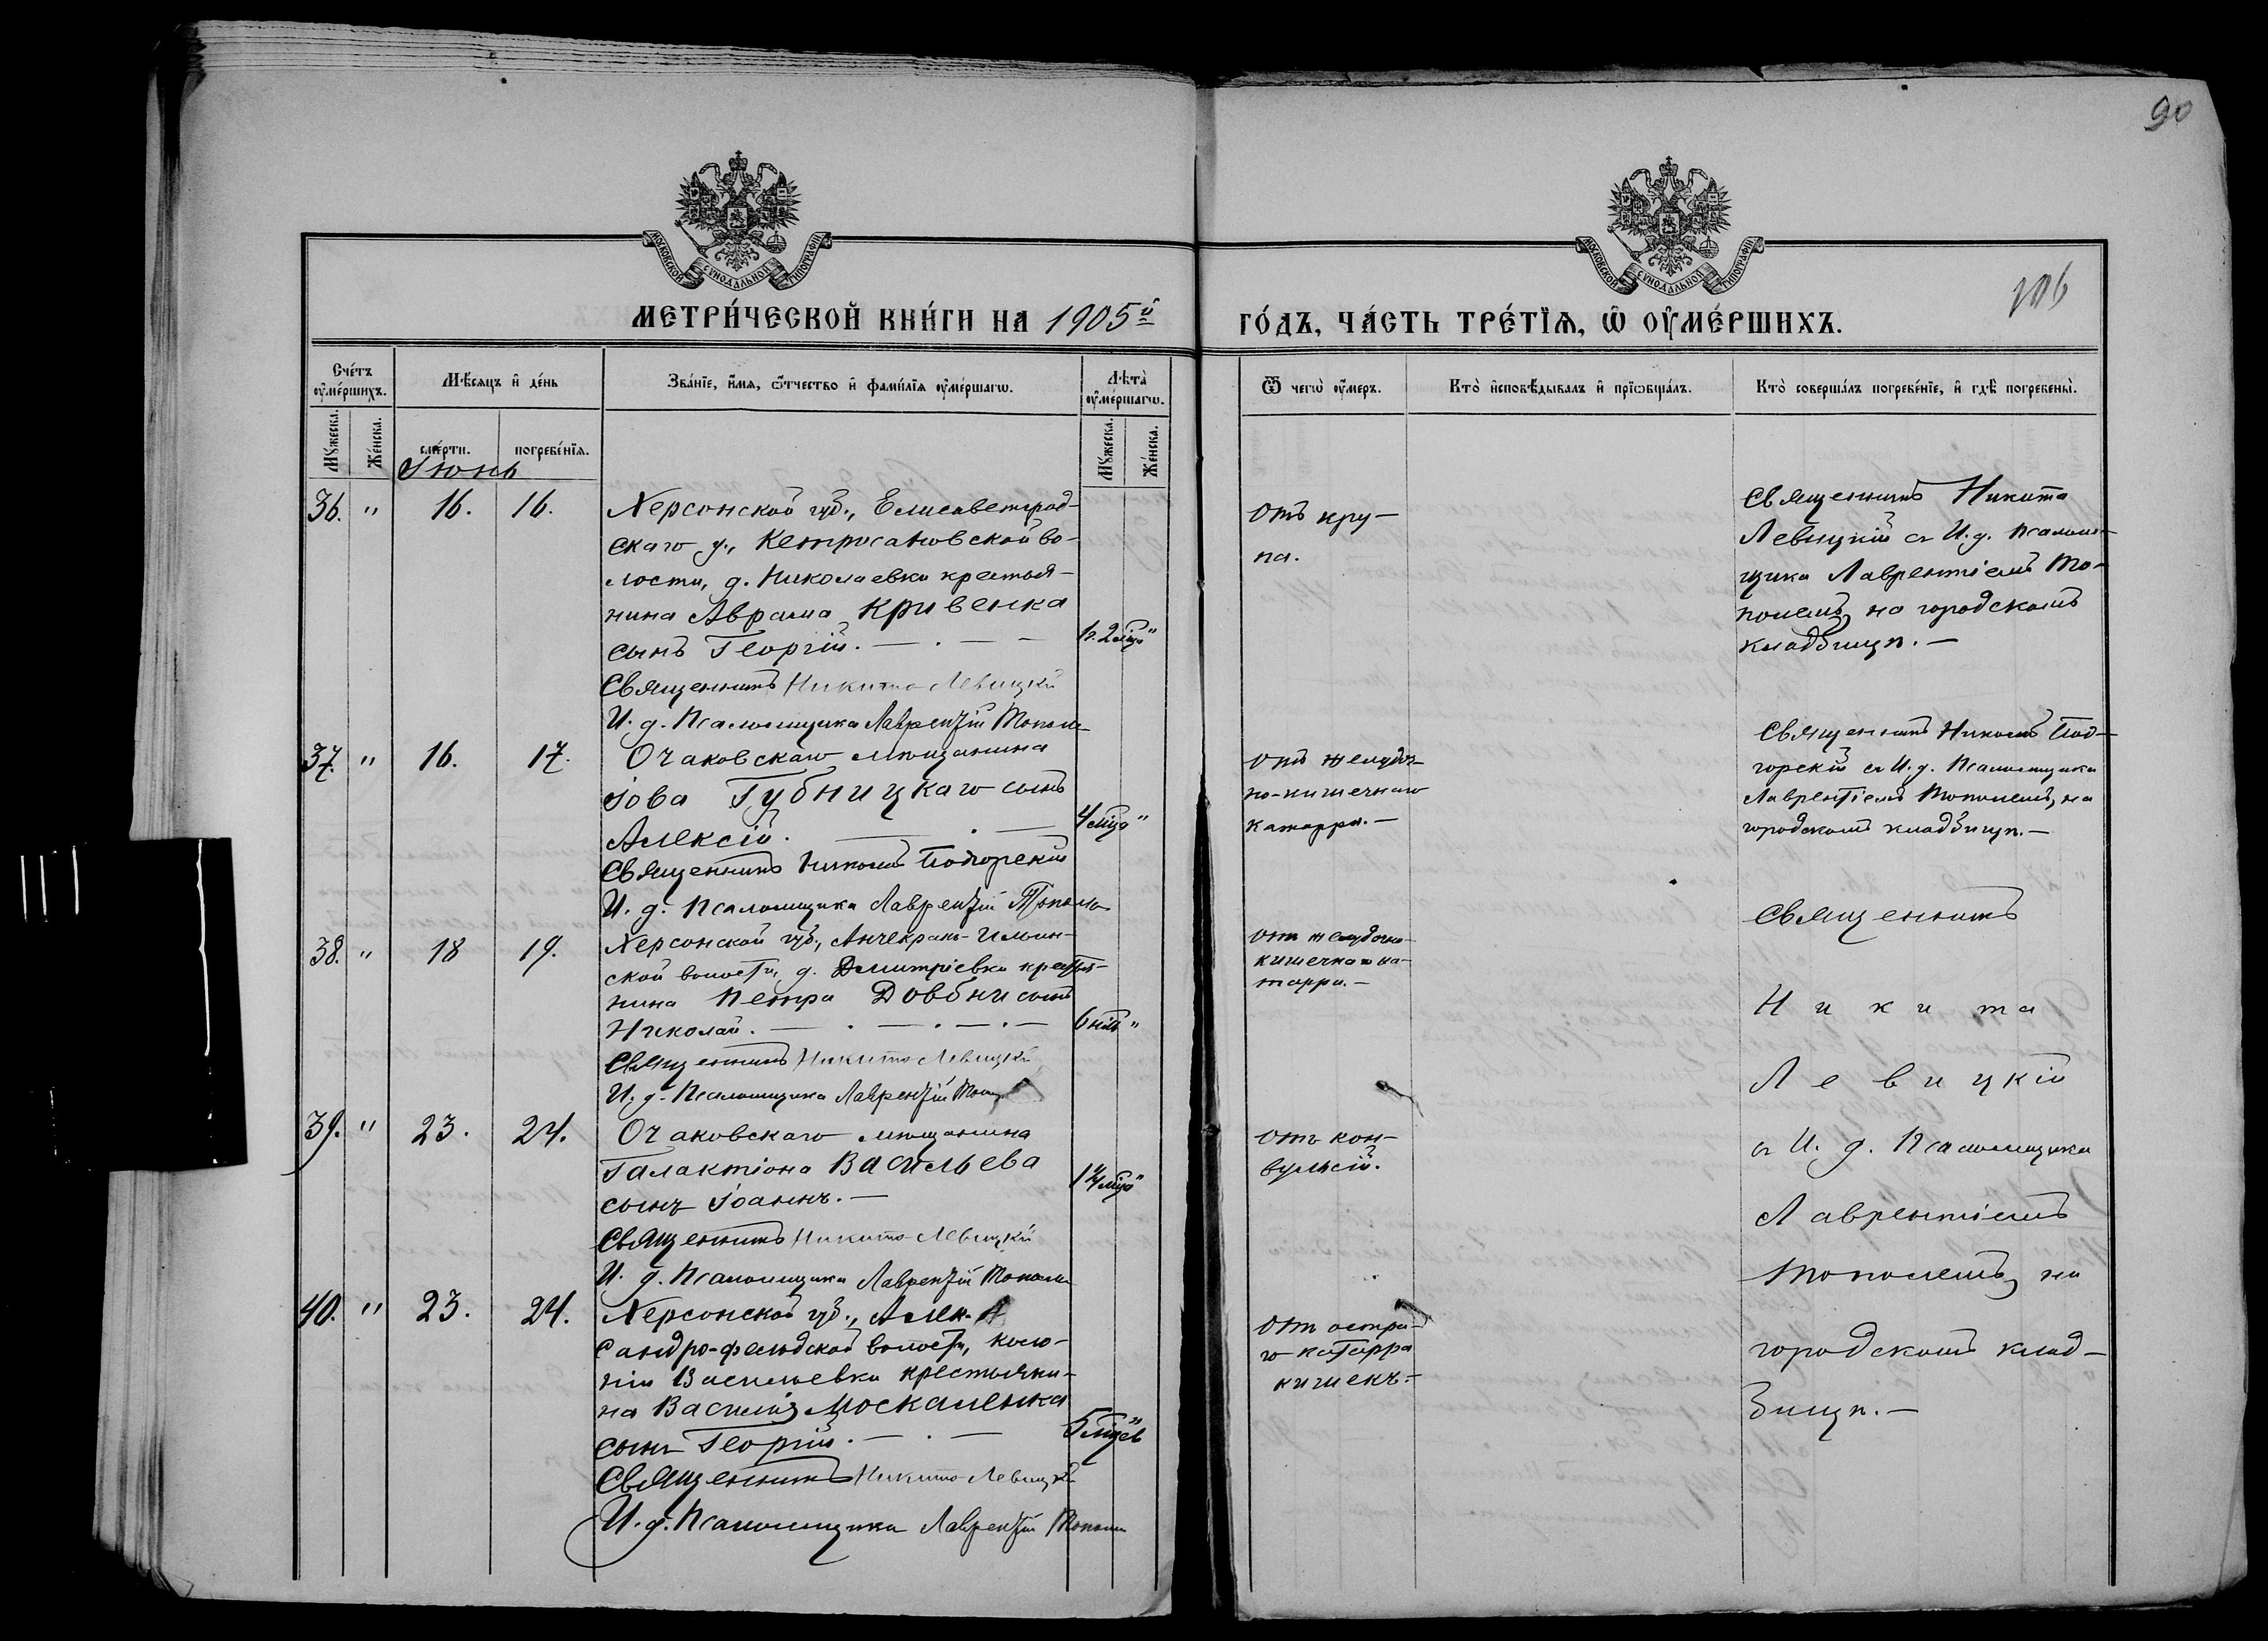 90
106
МОСКОВСКОЙ СѴНОДАЛЬНОЙ ТИПОГРАФІИ
МОСКОВСКОЙ СѴНОДАЛЬНОЙ ТИПОГРАФІИ
МЕТРИ́ЧЕСКОЙ КНИ́ГИ НА 1905й
ГО́ДЪ, ЧА́СТЬ ТРЕ́ТІѦ, Ѡ ОУМЕ́РШИХЪ.
Сче́тъ оумершихъ.
Мѣсяцъ и де́нь
Зва́нїе, и́мя, ѿтчество и фами́лїя оуме́ршагѡ.
Лѣта̀ оуме́ршагѡ.
Ѿ чегѡ̀ оу́меръ.
Кто̀ и҆сповѣ́дывалъ и҆ прїѡбща́лъ.
Кто̀ соверша́лъ погребе́нїе, и҆ гдѣ̀ погребены̀.
Му́жеска.
Же́нска.
сме́рти.
погребе́нїя.
Му́жеска.
Же́нска.
Іюнь
36. " 16. 16.
Херсонской губ., Елисаветград-
скаго у., Кетрисановской во-
лости, д. Николаевки крестья-
нина Аврама Кривенка
сынъ Георгій. — . — —
1г. 2 мца "
Священникъ Никита Левицкій
И. д. Псаломщика Лаврентій Тополь
Отъ кру-
па.
Священникъ Никита
Левицкій съ И. д. Псалом-
щика Лаврентіемъ То-
полемъ, на городскомъ
кладбищѣ. —
37. " 16. 17.
Очаковскаго мѣщанина
Іова Губницкаго сынъ
Алексій. — . —
4 мца "
Священникъ Николай Подгорскій
И. д. Псаломщика Лаврентій Тополь
Отъ желудоч-
но-кишечнаго
катарра. —
Священникъ Николай Под-
горскій съ И. д. Псаломщика
Лаврентіемъ Тополемъ, на
городскомъ кладбищѣ. —
38. " 18 19.
Херсонской губ., Анчекракъ-Ильин-
ской волости, д. Дмитріевки крестья-
нина Петра Довбни сынъ
Николай. — . — . — . —
6 "
Священникъ Никита Левицкій
И. д. Псаломщика Лаврентій
Отъ желудочно-
кишечнаго ка-
тарра. —
Священникъ
Никита
Левицкій
съ И. д. Псаломщика
Лаврентіемъ
Тополемъ, на
городскомъ клад-
бищѣ. —
39. " 23. 24.
Очаковскаго мѣщанина
Галактіона Васильева
сынъ Іоаннъ. —
"
Священникъ Никита Левицкій
И. д. Псаломщика Лаврентій Тополь
Отъ кон-
вульсій.
40. " 23. 24.
Херсонской губ., Алек-
сандро-фельдской волости, коло-
ніи Васильевки крестьяни-
на Василія Москаленка
сынъ Георгій. — . —
5 мцев "
Священникъ Никита Левицкій
И. д. Псаломщика Лаврентій Тополь
Отъ остра-
го катарра
кишекъ. —